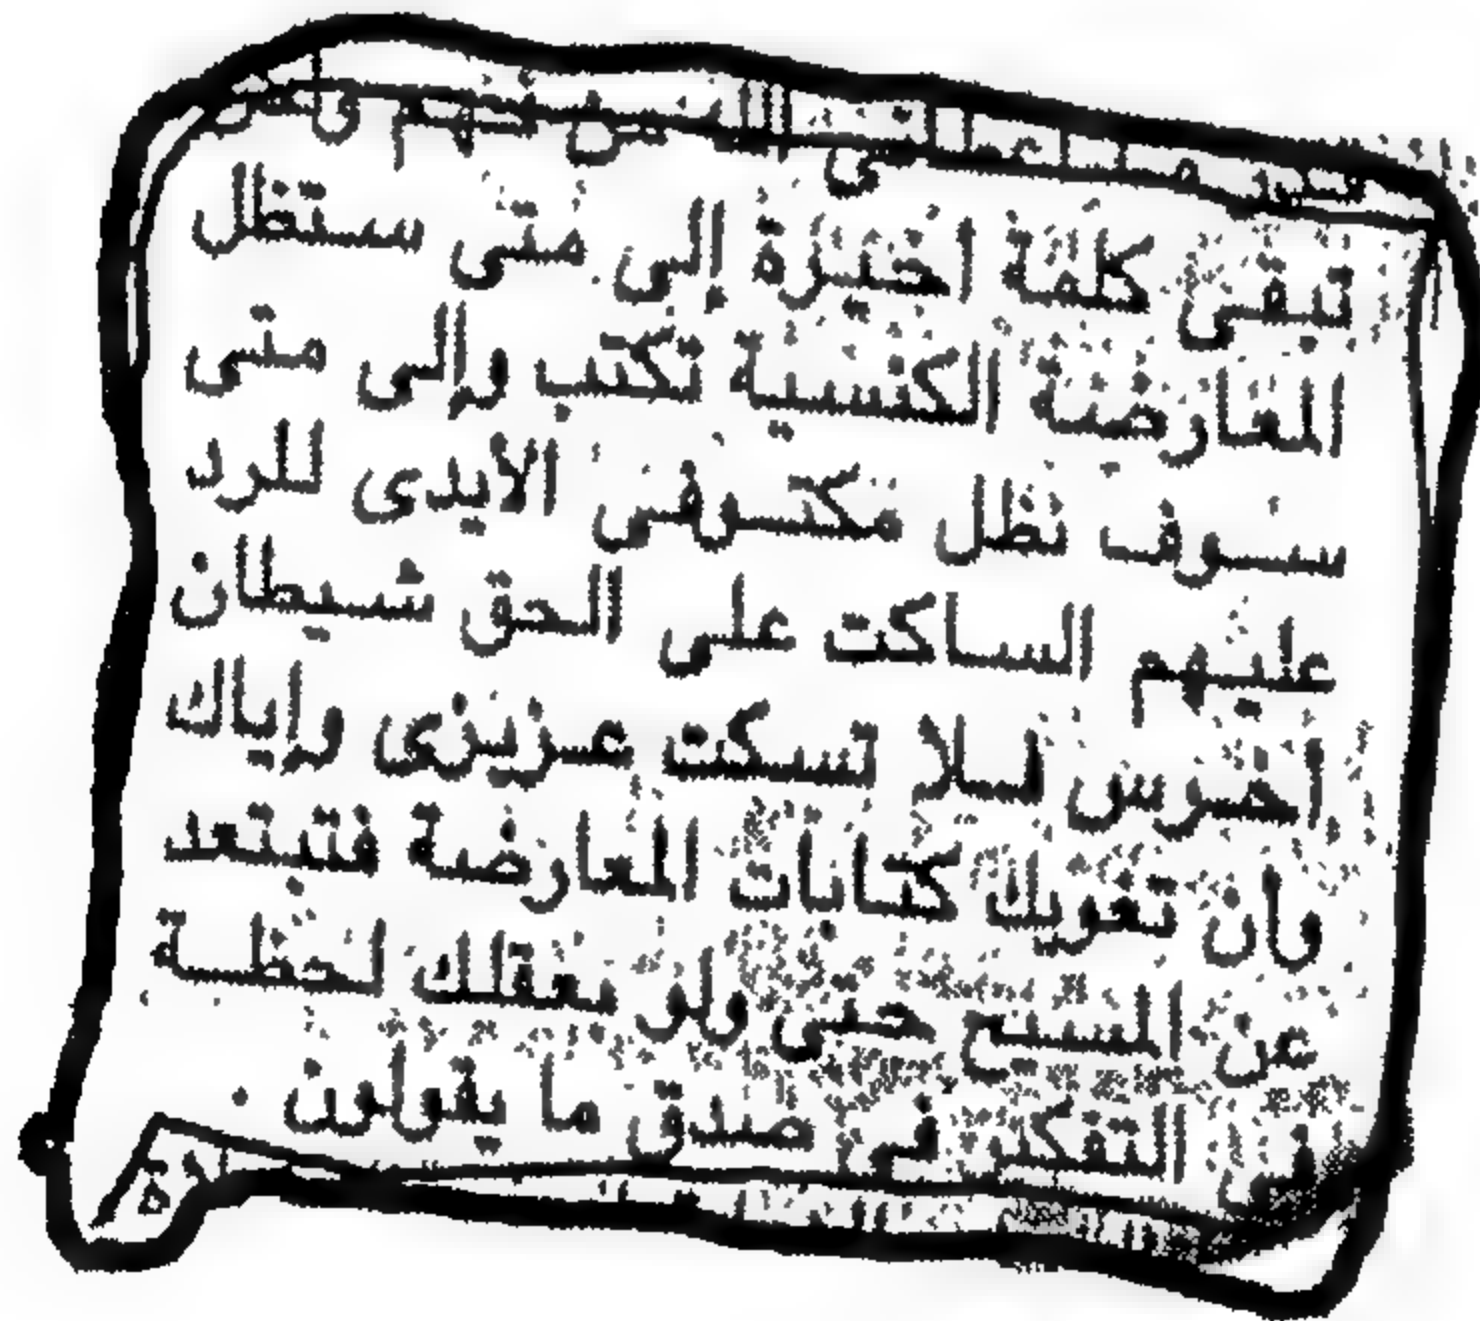 تبقى كلمة اخيرة إلى متى ستظل
المعارضة الكنسية تكتب وإلى متى
سوف نظل مكتوفى الأيدى للرد
عليهم الساكت على الحق شيطان
أخرس لسلا تسكت عزيزى وإياك
وان تغويك كتابات المعارضة فتبتعد
عن المسيح حتى ولو بعقلك لحظة
فى التفكير فى صدق ما يقولون .